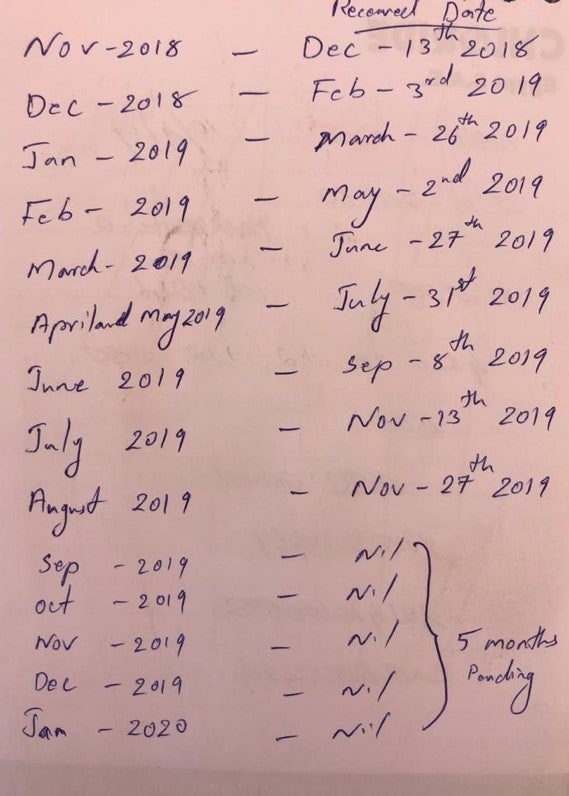 Received Date
Nov - 2018 - Dec - 13th 2018
Dec - 2018 - Feb - 3rd 2019
Jan - 2019 - March - 26th 2019
Feb - 2019 - May - 2nd 2019
March - 2019 - June - 27th 2019
April and May 2019 - July - 31st 2019
June 2019 - Sep - 8th 2019
July 2019 - Nov - 13th 2019
August 2019 - Nov - 27th 2019
Sep - 2019 - Nil
oct - 2019 - Nil
Nov - 2019 - Nil
Dec - 2019 - Nil
Jan - 2020 - Nil
5 months
Pending